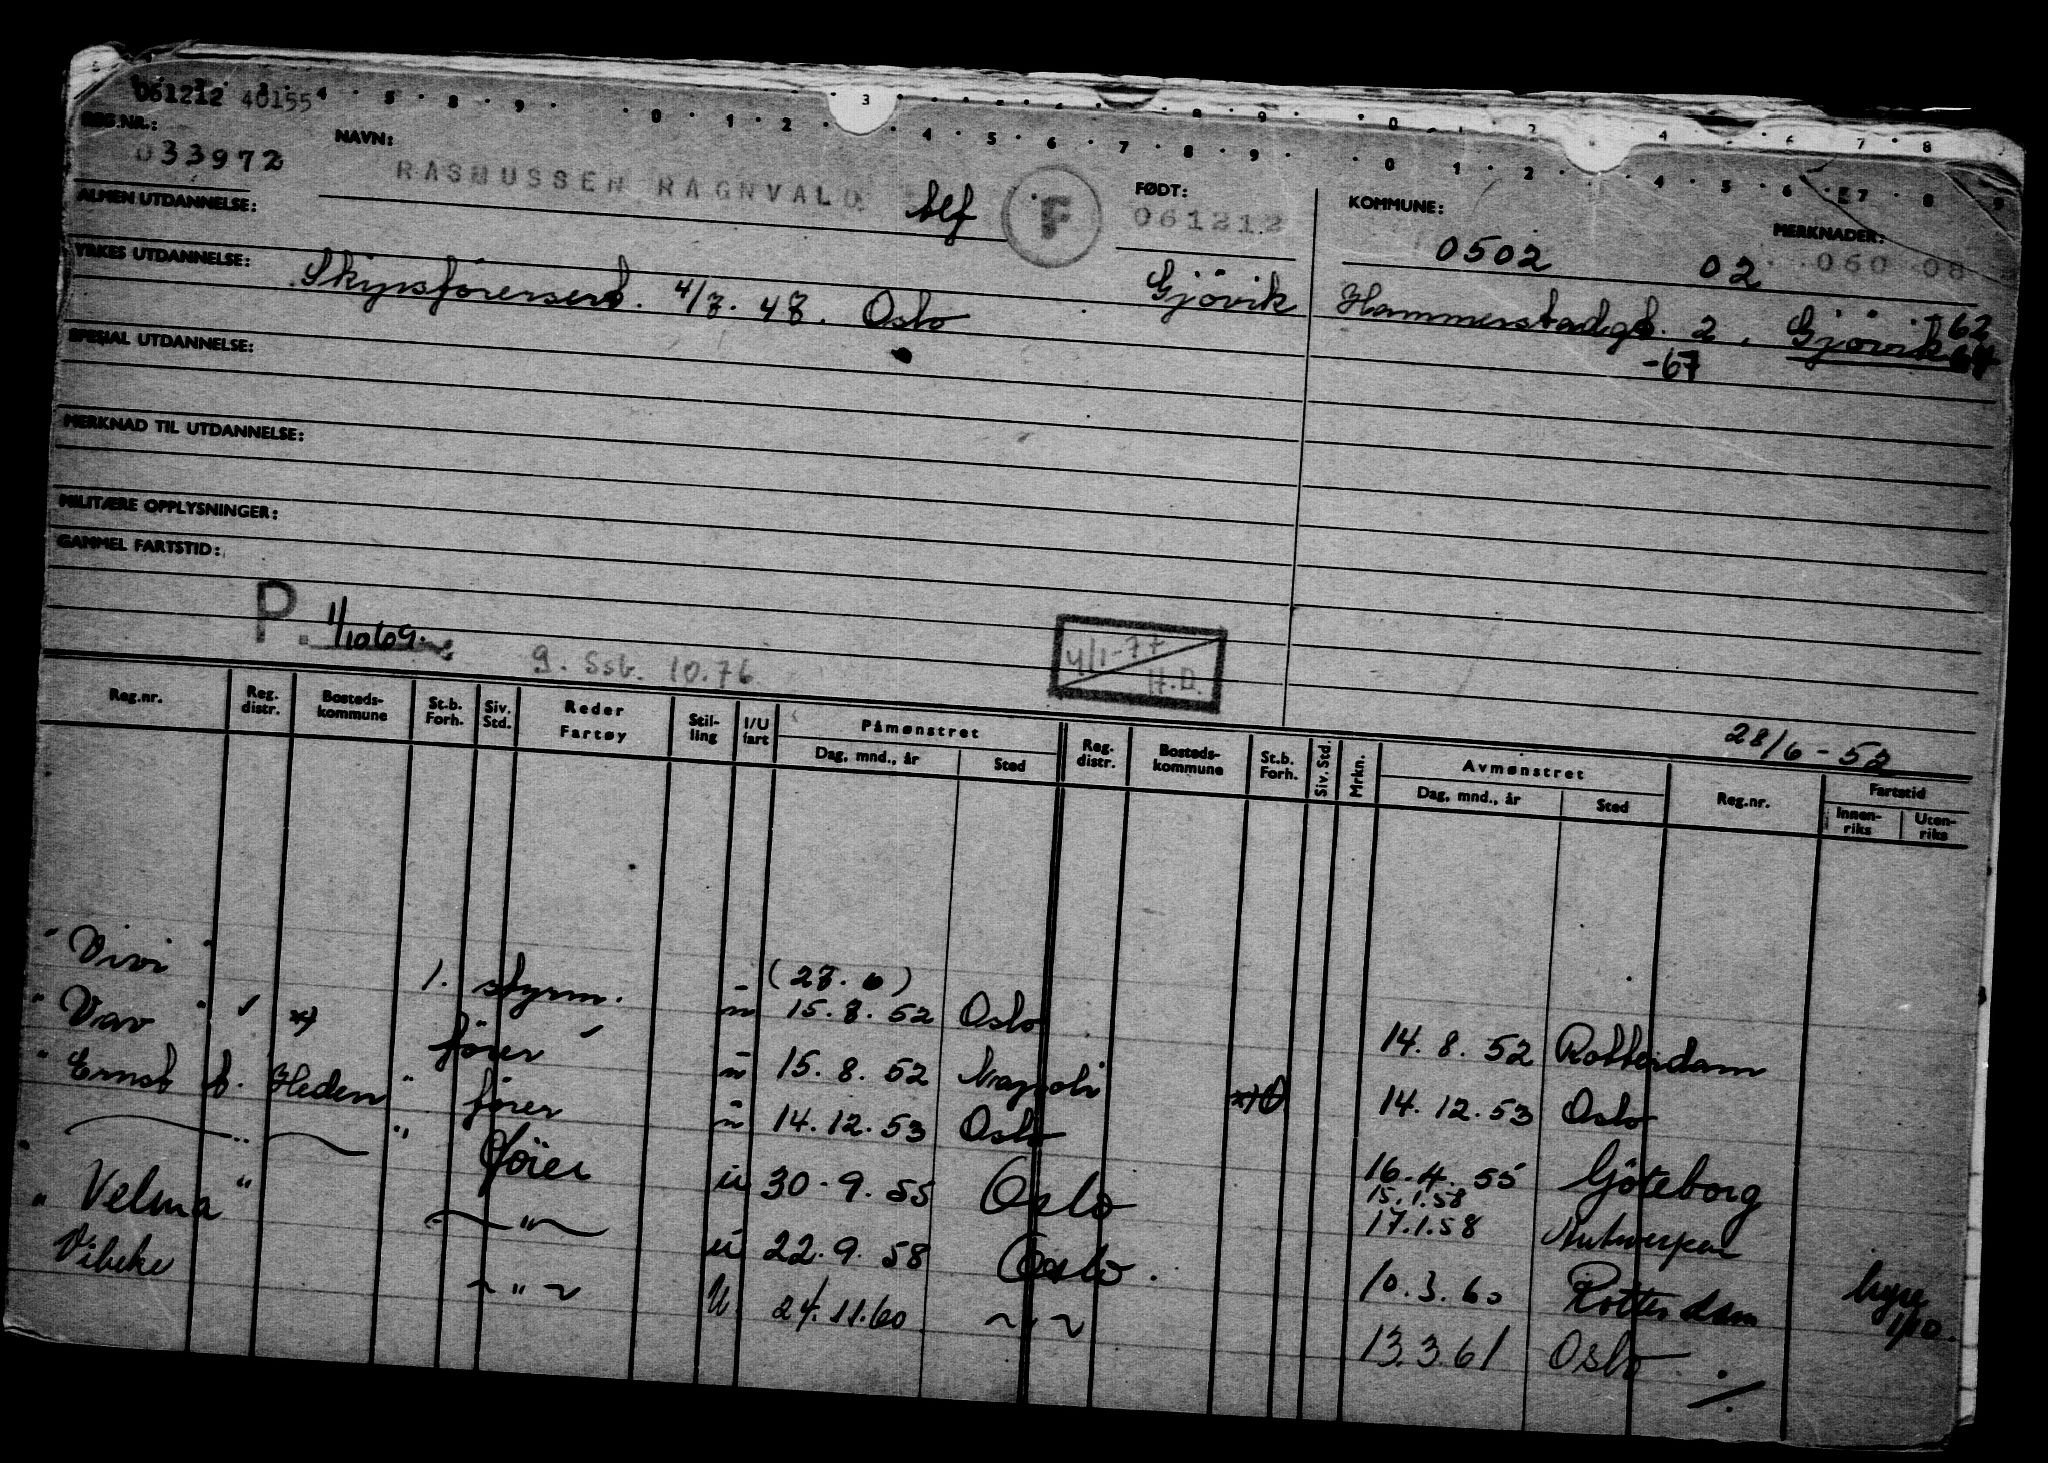 061212 40155
REG.NR.: NAVN: FØDT: KOMMUNE: MERKNADER:
033972 RASMUSSEN RAGNVALD Alf F 061212 0502 02 060 08
ALMEN UTDANNELSE:
YRKES UTDANNELSE: Skipsførersert. 4/7. 47. Oslo Gjøvik Hammerstadgt. 2, Gjøvik -62
-67
SPESIAL UTDANNELSE:
MERKNAD TIL UTDANNELSE:
MILITÆRE OPPLYSNINGER:
GAMMEL FARTSTID:
P. 1/10 69. 9. Ssb. 10.76 4/1-77 H.D.
28/6-52
Reg.nr. Reg. distr. Bosteds-kommune St.b. Forh. Siv. Std. Reder Fartøy Stil-ling I/U fart Påmønstret Dag, mnd., år Sted Reg. distr. Bosteds-kommune St.b. Forh. Siv. Std. Mrkn. Avmønstret Dag, mnd., år Sted Reg.nr. Fartstid Innen-riks Uten-riks
(27. 6)
"Vivi" 1. styrm. u 15. 8. 52 Oslo 14. 8. 52 Rotterdam
"Vav" x) fører u 15. 8. 52 Nrapoli x) 14. 12. 53 Oslo
"Ernst G. Heden" fører u 14. 12. 53 Oslo 16. 4. 55 Göteborg
" " fører u 30. 9. 55 Oslo 15.1.58 17.1.58 Antwerpen
"Velma" " u 22. 9. 58 Oslo. 10. 3. 60 Rotterdam hyre 1/10.
"Vibeke " U 24.11.60 " 13. 3. 61 Oslo